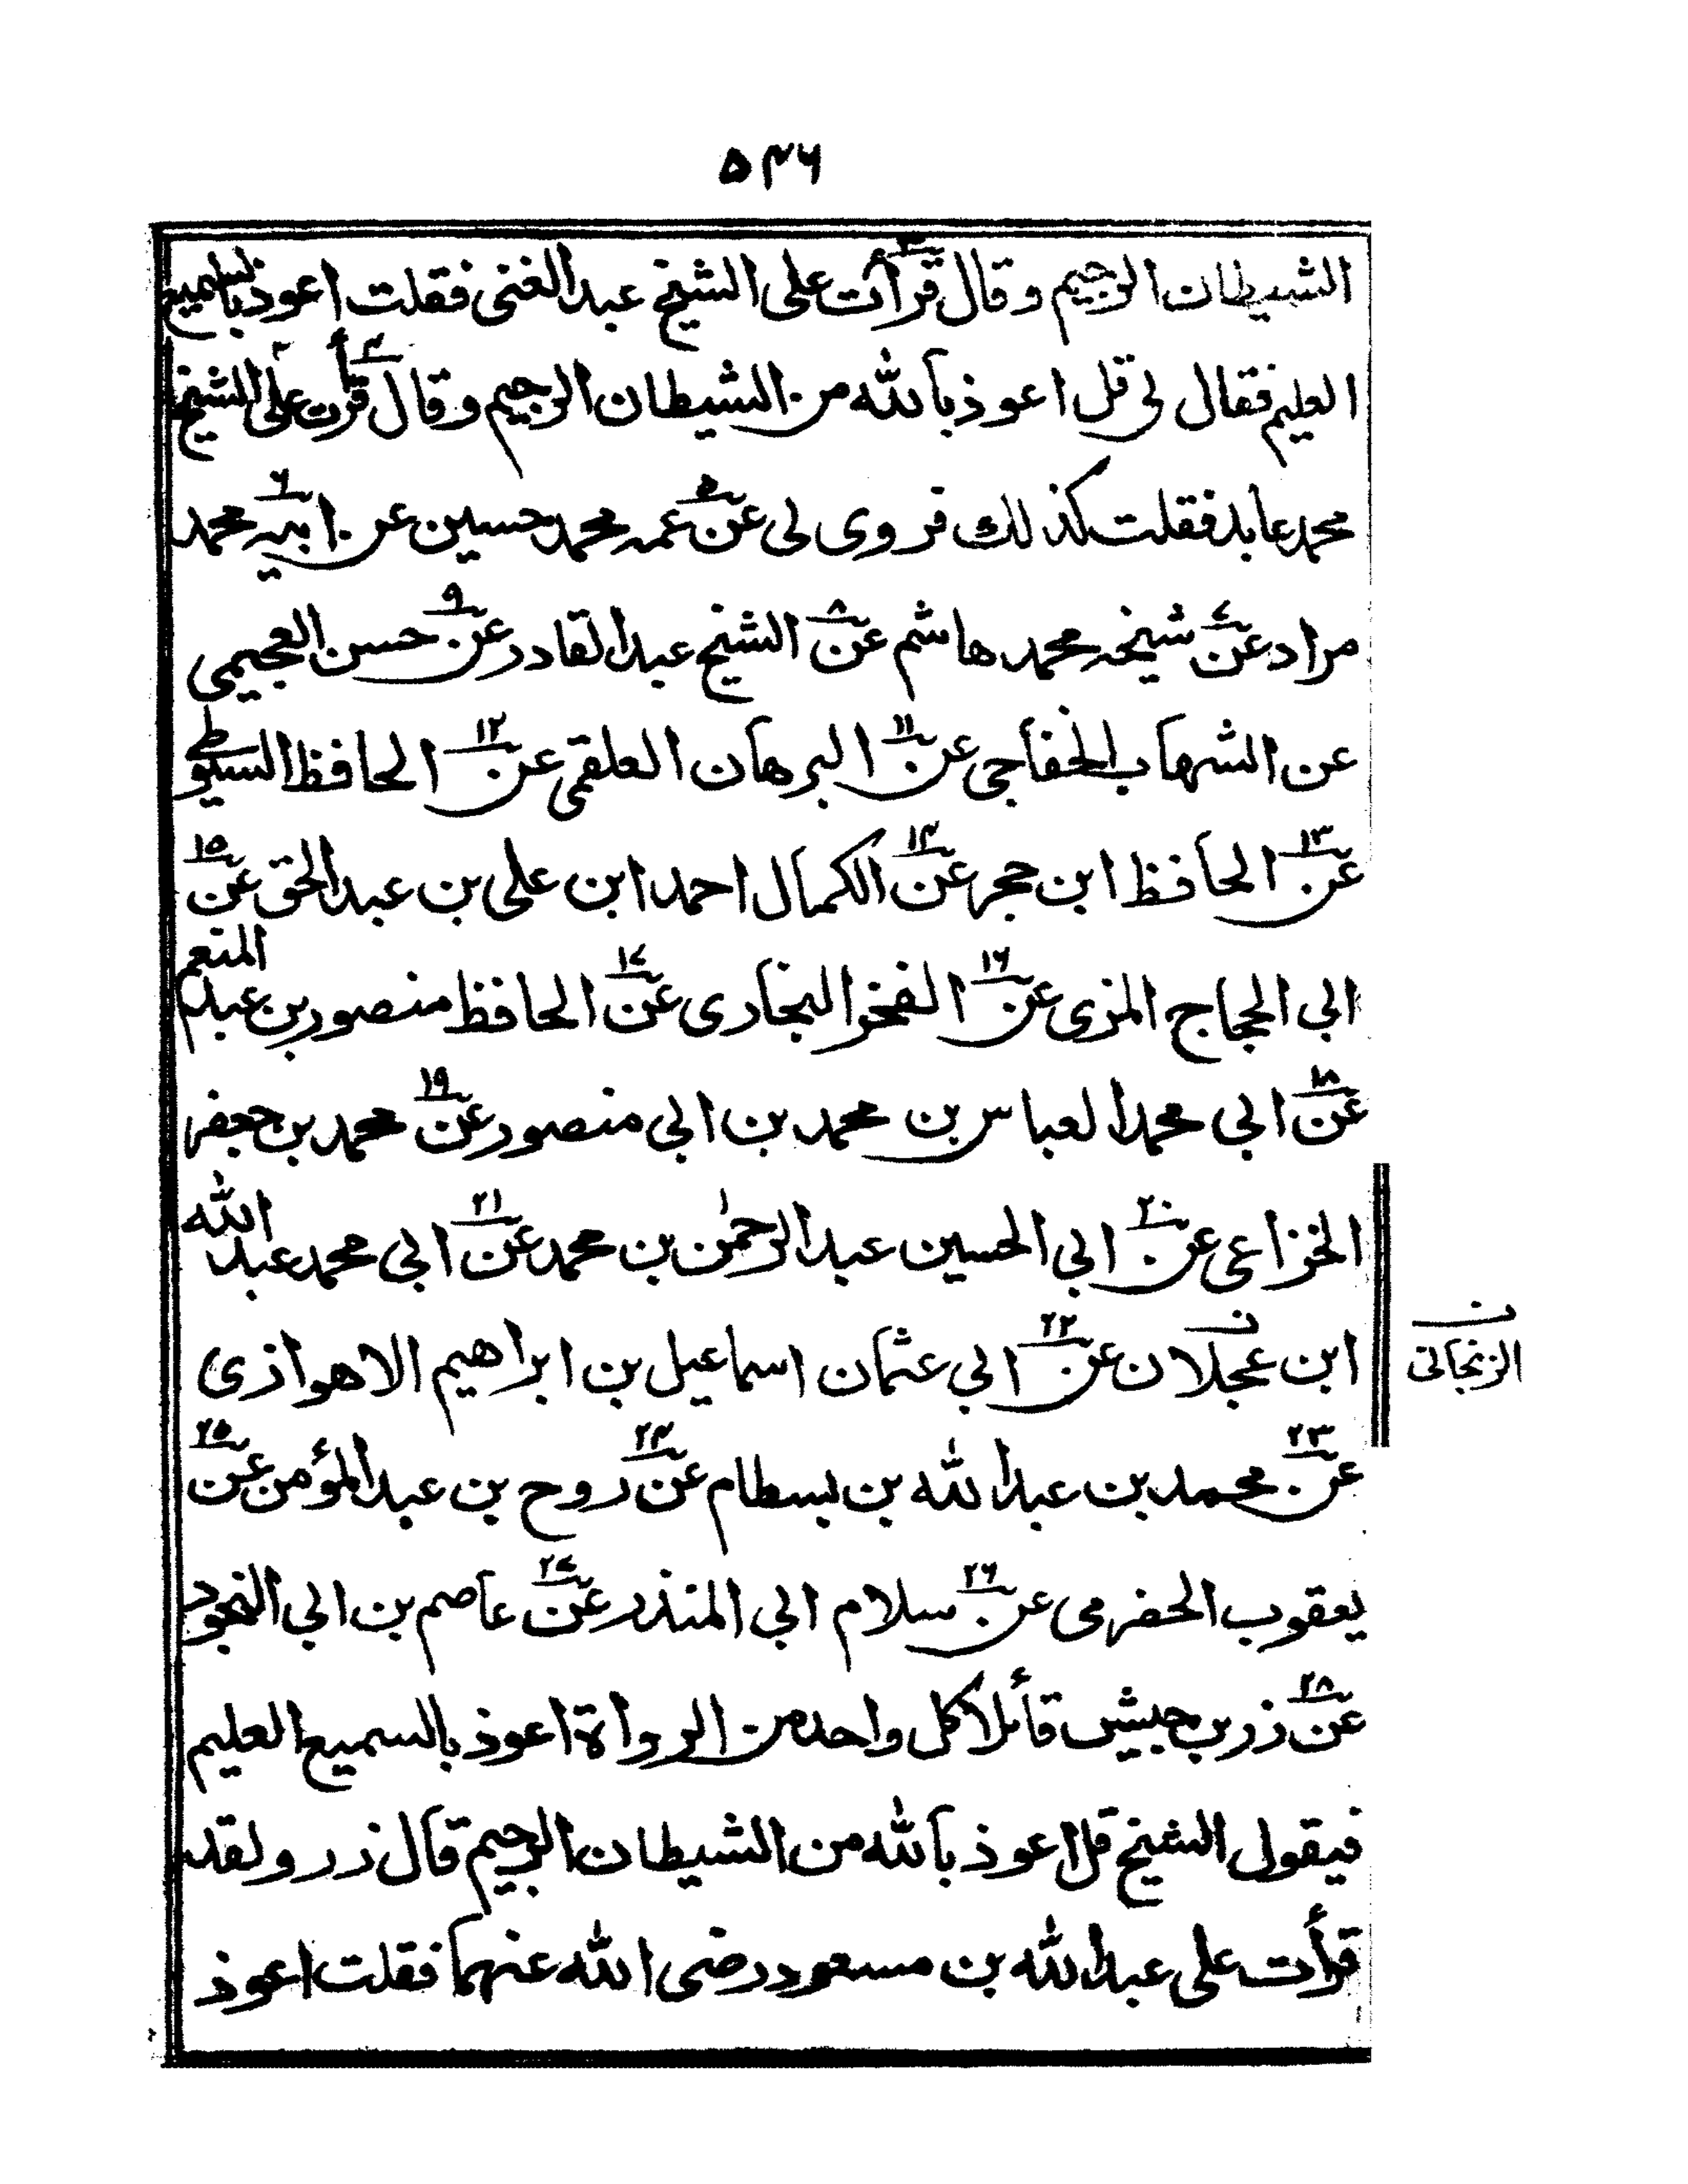 ۵۴۶
الشیطان الرجیم وقال قرأت علی الشیخ عبدالغنی فقلت اعوذ بالسمیع
العلیم فقال لی قل اعوذ بالله من الشیطان الرجیم وقال قرأت علی الشیخ
محمد عابد فقلت کذلك فروی لی عن عمه محمد حسین عن ابیه محمد
مراد عن شیخه محمد هاشم عن الشیخ عبدالقادر عن حسن العجیمی
عن الشهاب الخفاجی عن البرهان العلقمی عن الحافظ السیوطی
عن الحافظ ابن حجر عن الکمال احمد ابن علی بن عبدالحق عن
ابی الحجاج المزی عن الفخر البخاری عن الحافظ منصور بن عبدالمنعم
عن ابی محمد العباس بن محمد بن ابی منصور عن محمد بن جعفر
الخزاعی عن ابی الحسین عبدالرحمٰن بن محمد عن ابی محمد عبدالله
ابن عجلان عن ابی عثمان اسماعیل بن ابراهیم الاهوازی
ن الزنجانی
عن محمد بن عبدالله بن بسطام عن روح بن عبدالمؤمن عن
یعقوب الحضرمی عن سلام ابی المنذر عن عاصم بن ابی النجود
عن زر بن حبیش قائلا کل واحد من الرواة اعوذ بالسمیع العلیم
فیقول الشیخ قل اعوذ بالله من الشیطان الرجیم قال زر ولقد
قرأت علی عبدالله بن مسعود رضی الله عنهما فقلت اعوذ